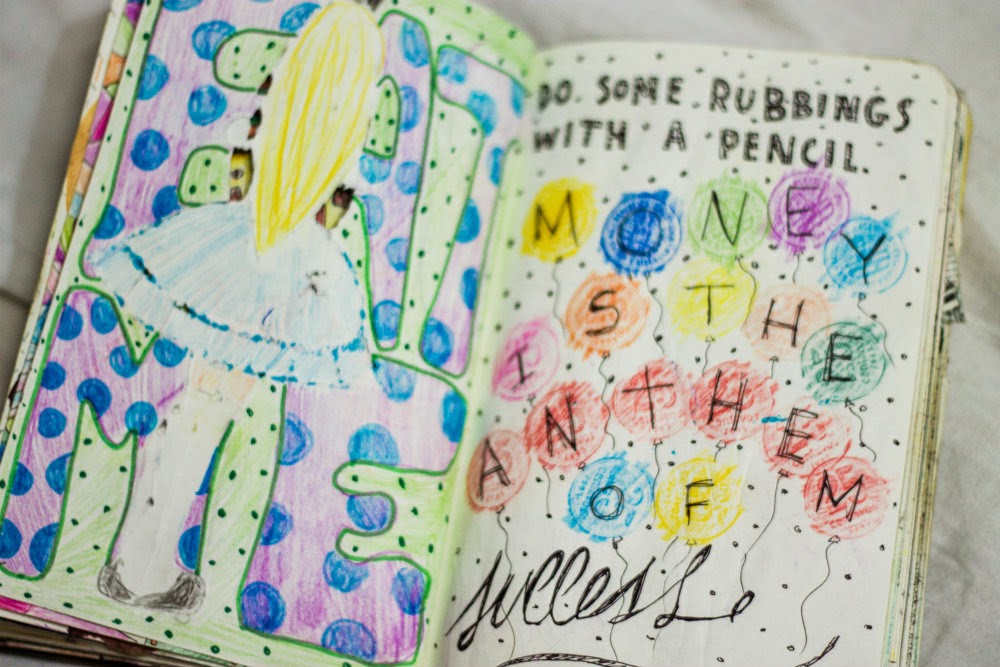 EAT
ME
DO SOME RUBBINGS
WITH A PENCIL.
MONEY
IS THE
ANTHEM
OF
success